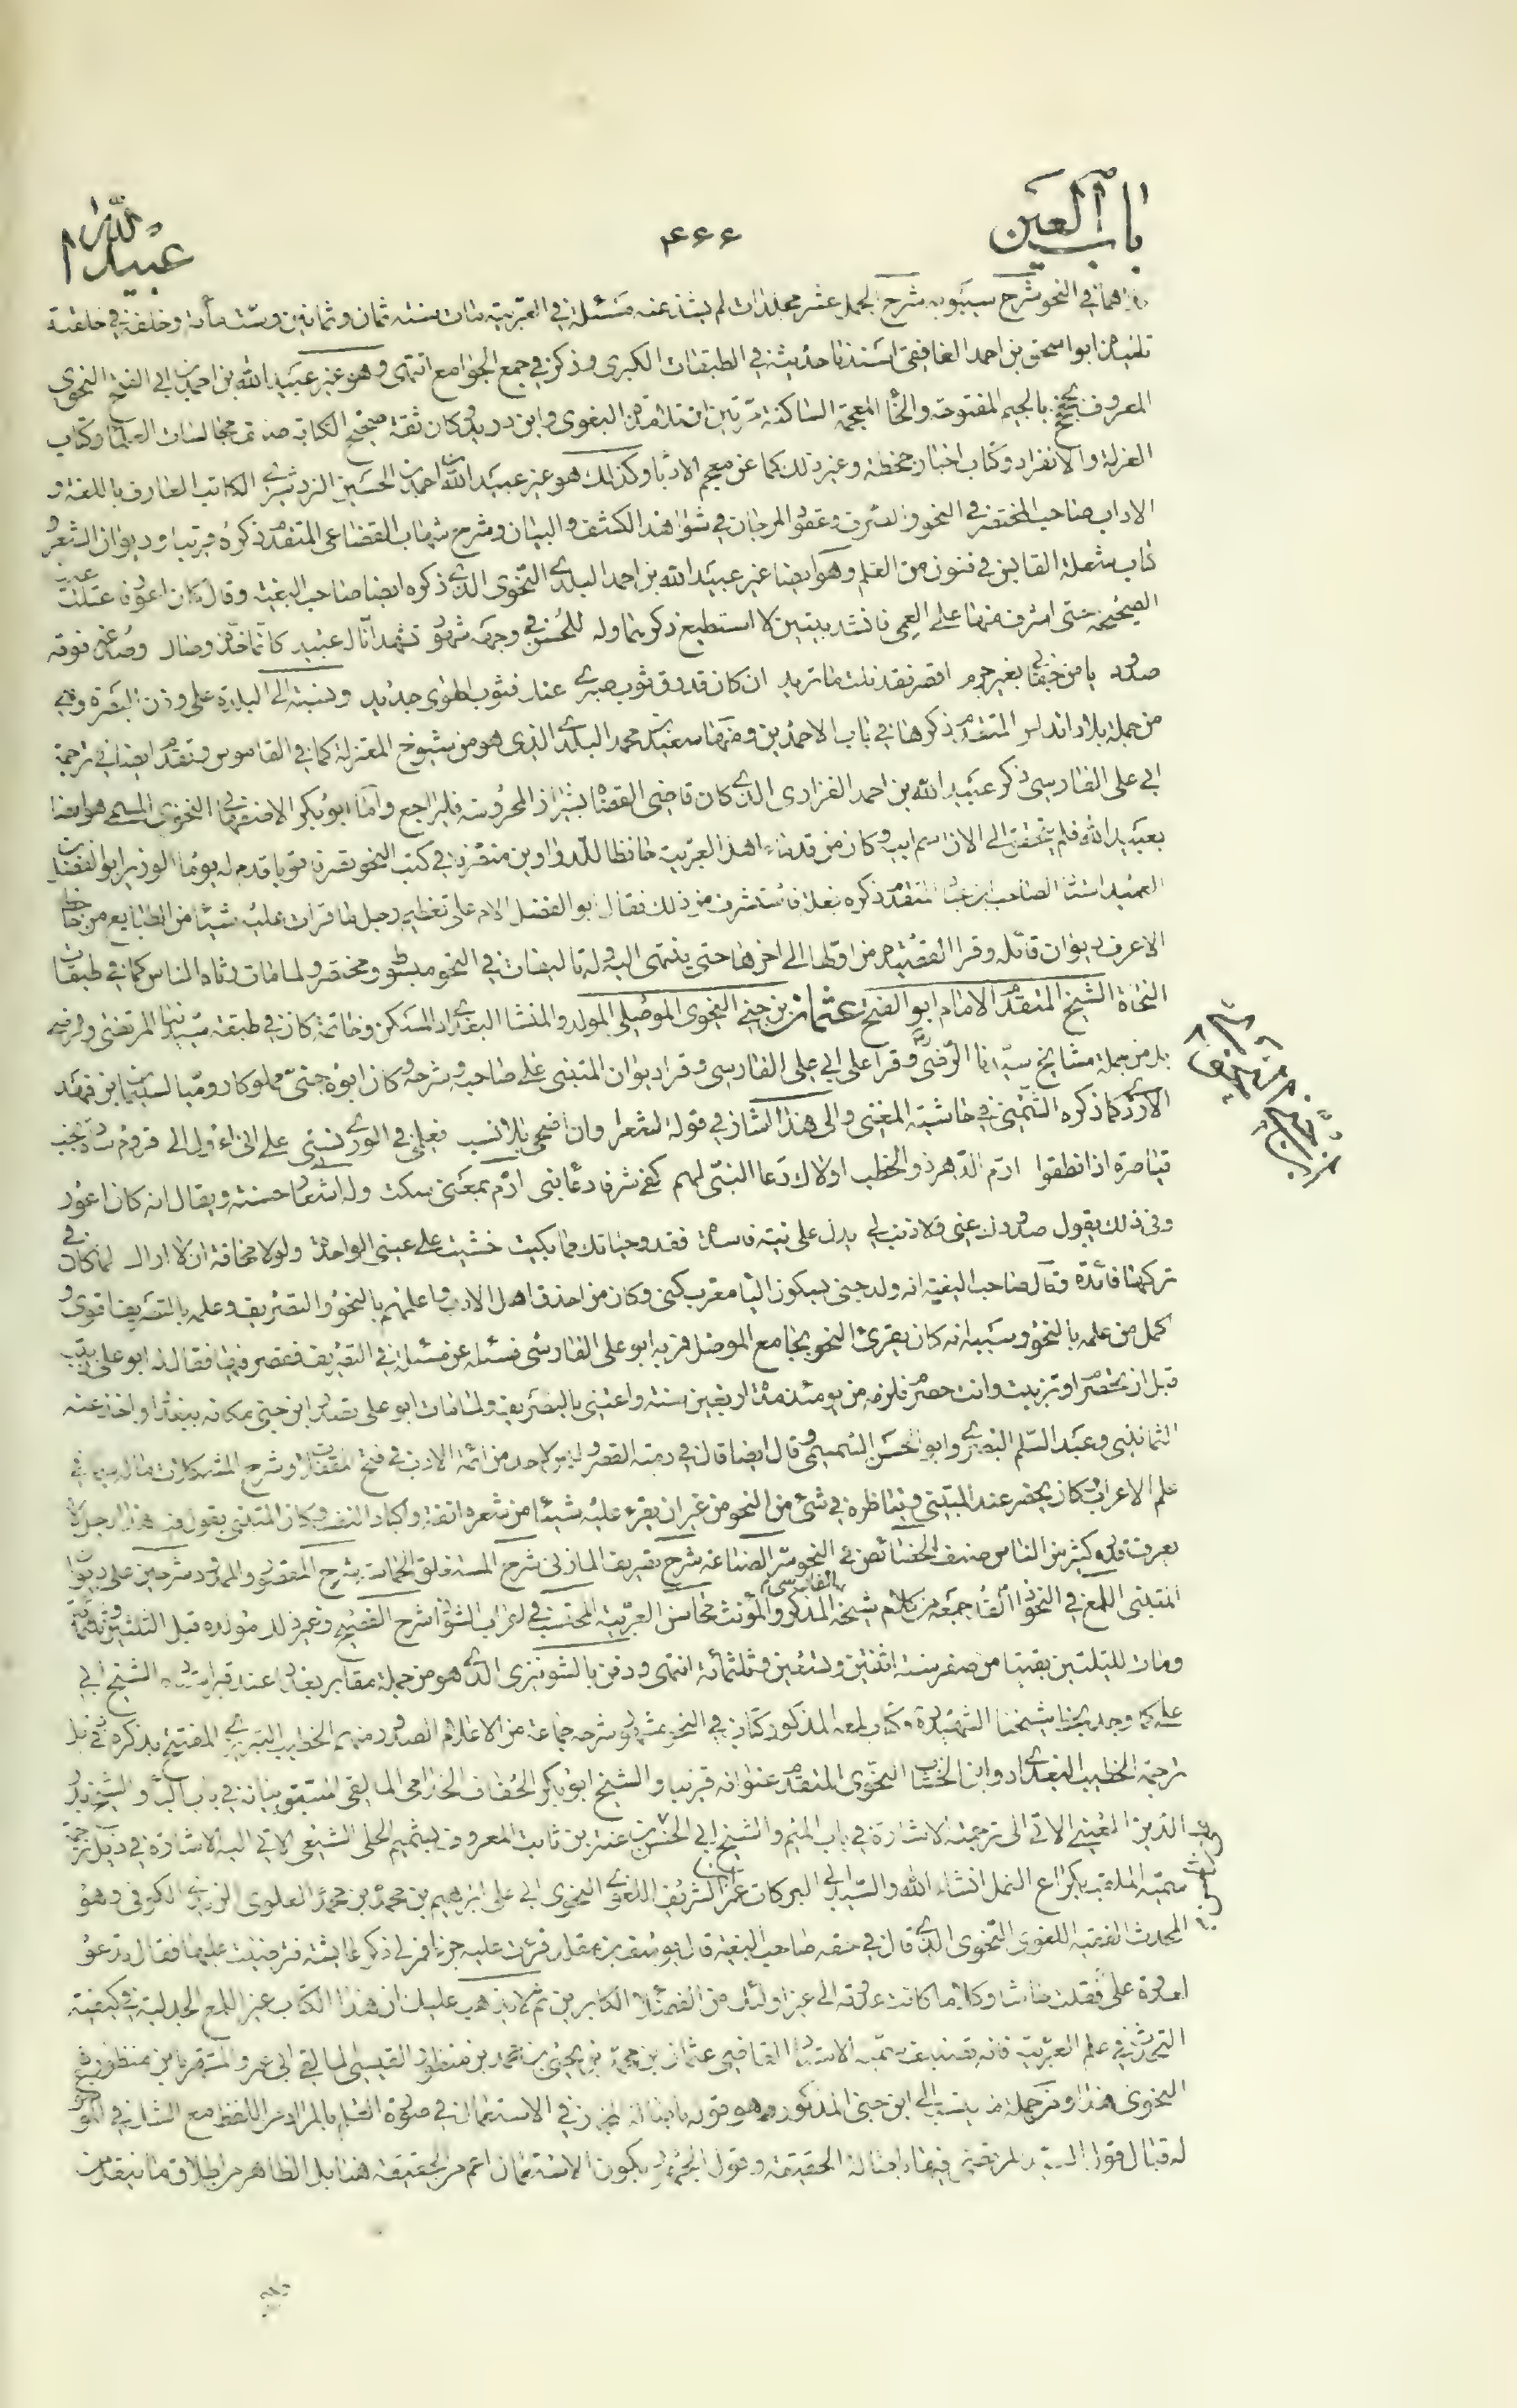 باب العين
۴۶۶
عبيد الله
في النحو شرح سيبويه شرح الجمل عشر مجلدات لم يشذ عنه مسئلة في العربية مات سنة ثمان وثمانين وستمائة وخلفه في حلقته
تلميذه ابو اسحق بن احمد الغافقي اسندنا حديثه في الطبقات الكبرى وذكر في جمع الجوامع انتهى وهو غير عبيد الله بن احمد بن ابي الفتح النحوى
المعروف بجخجخ بالجيم المفتوحة والخاء المعجمة الساكنة مرتين البغوى وابن دريد وكان ثقة صحيح الكتابة صنف مجالسات العلماء وكتاب
العزلة والانفراد وكتاب اخبار جحظة وغير ذلك كما عن معجم الادباء وكذلك هو غير عبيد الله بن احمد بن الحسين الكاتب العارف باللغة و
الاداب صاحب المختصر في النحو والصرف وعقود المرجان في شواهد الكشف والبيان وشرح شهاب القضاعى المتقدم ذكره قريبا وديوان الشعر و
كتاب شعلة القابس في فنون من العلم وهو ايضا غير عبيد الله بن احمد البلدى النحوى الذى ذكره ايضا صاحب البغية وقال كان اعور فاعتلت عينه
الصحيحة حتى اشرف منها على العمى فانشد بيتين لا استطيع ذكرهما وله للحسن في وجهه شهود تشهد انا له عبيد كانما خده وصال وصدغه فوقه
صدود يا من جفانى بغير جرم اقصر فقد نلت ما تريد ان كان قد رق ثوب صبرى عنك فثوب الهوى جديد ونسبته الى البلدة على وزن البصرة وهى
من جملة بلاد اندلس المتقدم ذكرها في باب الاحمدين ومنها سعيد بن محمد البلدى الذى هو من شيوخ المعتزلة كما في القاموس وتقدم ايضا في ترجمة
ابي على الفارسى ذكر عبيد الله بن احمد الفزارى الذى كان قاضى القضاة بشيراز المحروسة فليراجع واما ابو بكر النحوى المسمى هو ايضا
بعبيد الله فلم يتحقق لى الان اسم ابيه وكان من قدماء اهل العربية حافظا للدواوين في كتب النحو تصرفا قويا قدم له يوما الوزير ابو الفضل بن
العميد استاد الصاحب بن عباد المتقدم ذكره نعله فاستشرف من ذلك فقال ابو الفضل الام على تعظيم رجل ما قرات عليه شيئا من الطبايع من
الا عرف ديوان قائله وقرا القصيدة من اولها الى اخرها حتى ينتهى اليه وله تاليفات في النحو مبسوط ومختصر ولما مات رثاه الناس كما في طبقات
النحاة الشيخ المتقدم الامام ابو الفتح عثمان بن جنى النحوى الموصلى المولد والمنشا البغدادى المسكن وخاتمة كان في طبقة سيدنا المرتضى والرضى
بل من جملة مشايخ سيدنا الرضى ره وقرا على ابي على الفارسى وقرا ديوان المتنبى على صاحبه وشرحه وكان ابوه جنى مملوكا روميا لسليمان بن فهد
الازدى كما ذكره الشمنى في حاشية المغنى والى هذا اشار في قوله لشعر وان اصبح بلا نسب فعلمى في الورى نسبى على انى اءول الى قروم سادة نجب
قياصرة اذا نطقوا ارم الدهر ذو الخطب اولاك دعا النبى لهم كفى شرفا دعا نبى ارم بمعنى سكت وله اشعار حسنة ويقال انه كان اعور
وفى ذلك يقول صدودك عنى ولا ذنب لى يدل على نية فاسدة فقد وحياتك مما بكيت خشيت على عينى الواحدة ولولا مخافة ان لا اراك لما كان في
تركها فائدة وقال صاحب البغية انه ولد جنى بسكون اليا معرب كنى وكان من احذق اهل الادب واعلمهم بالنحو والتصريف وعلمه بالتصريف اقوى و
اكمل من علمه بالنحو وسببه انه كان يقرئ النحو بجامع الموصل فمر به ابو على الفارسى فسئله عن مسئلة في التصريف فقصر فيها فقال له ابو على زببت
قبل ان تحصرم او تزببت وانت حصرم فلزمه من يومئذ مدة اربعين سنة واعتنى بالتصريف ولما مات ابو على تصدر ابن جنى مكانه ببغداد واخذ عنه
الثمانينى وعبد السلم البصرى وابو الحسن السمسمى وقال ايضا قال في دمية القصر وليس لاحد من ائمة الادب في فتح المقفلات وشرح المشكلات ما له سيما في
علم الاعراب وكان يحضر عند المتنبى ويناظره في شئ من النحو من غير ان يقرء عليه شيئا من شعره انفة واكبارا لنفسه وكان المتنبى يقول فيه هذا رجل لا
يعرف قدره كثير من الناس صنف الخصائص في النحو سر الصناعة شرح تصريف المازنى شرح المستغلق الحماسة شرح المقصور والممدود شرحين على ديوان
المتنبى اللمع في النحو ذا القد جمعه من كلام شيخه الفارسى المذكر والمؤنث محاسن العربية المحتسب في اعراب الشواذ شرح الفصيح وغير ذلك مولده قبل الثلثين وثلثمائة
ومات لليلتين بقيتا من صفر سنة اثنتين وتسعين وثلثمائة انتهى ودفن بالشونيزى الذى هو من جملة مقابر بغداد عند قبر استاده الشيخ ابي
على كما وجد بخط شيخنا الشهيد ره وكتاب لمعه المذكور كتاب في النحو مشهور شرحه جماعة من الاعلام الصدور منهم الخطيب التبريزى المفتتح بذكره في ذيل
ترجمة الخطيب البغدادى وابن الخشاب النحوى المتقدم عنوانه قريبا والشيخ ابو بكر الخفاف الجذامى المالقى المستقر بيانه في باب الباء والشيخ بدر
الدين العينى الاتى الى ترجمته الاشارة في باب الميم والشيخ ابي الحسن بن عنتر بن ثابت المعروف بشميم الحلى الشيعى الاتى اليه الاشارة في ذيل ترجمة
سميه الملقب بكراع النمل انشاء الله والسيد ابي البركات عمر بن الشريف اللغوى النحوى ابي على ابرهيم بن محمد بن محمد العلوى الزيدى الكوفى وهو
المحدث الفقيه اللغوى النحوى الذى قال في حقه صاحب البغية قال يوسف بن مقلد قرئت عليه جزءا فمر لى ذكر عايشة فترضيت عليها فقال تدعو
لعدوة على فقلت حاشا وكلا ما كانت عدوته الى غير اولئك من الفضلا الكابرين ثم لا يذهب عليك ان هذا الكتاب غير اللمع الجدلية في كيفية
التحدث في علم العربية فانه تصنيف سميه الاستاد القاضى عثمان بن يحيى بن محمد بن منظور القيسى المالقى ابي عمرو المشتهر بابن منظور
النحوى هذا ومن جملة ما ينسب الى ابن جنى المذكور هو قوله باصالة المجاز في الاستعمال في صورة العلم بالمراد من اللفظ مع الشك في الموضوع
له قبال قول السيد المرتضى فيها باصالة الحقيقة وقول الجمهور بكون الاستعمال اعم من الحقيقة هنا بل الظاهر من اطلاق ما ينقل من